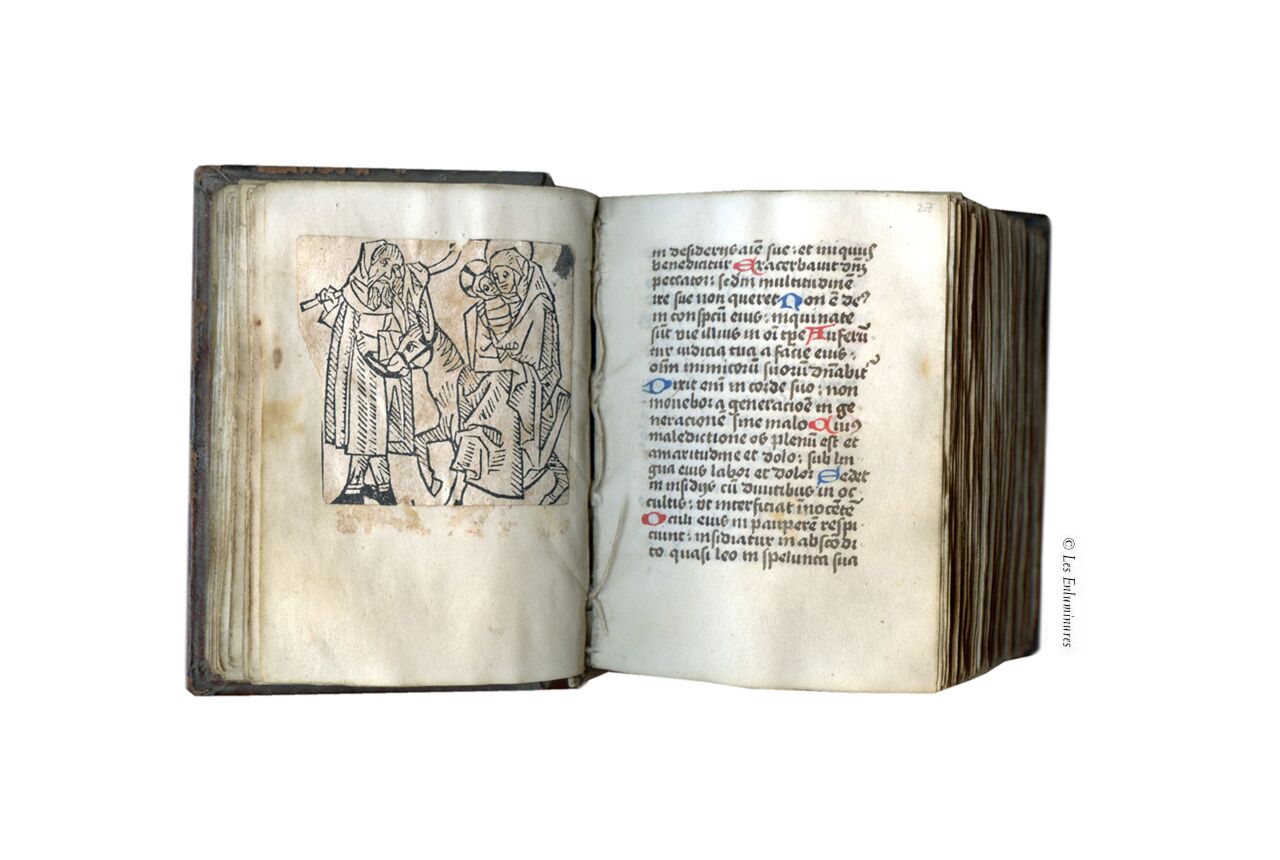 27
in desiderijs aīe sue : et iniquus
benedicitur Exacerbauit dn̄s
peccator : sedm multitudinē
ire sue non queret Non ē de9
in conspcū eius : inquinate
sūt vie illius in oī tpe Auferū
tur iudicia tua a facie eius :
oīm inimicorū suorū dn̄abit
Dixit enī in corde suo : non
mouebor a generacioē in ge
neracionē sine malo Cui9
maledictione os plenū est et
amaritudine et dolo : sub lin
gua eius labor et dolor Sedet
in insidijs cū diuitibus in oc
cultis : vt interficiat īnocētē
Oculi eius in pauperē respi
ciunt : insidiatur in abscōdi
to quasi leo in spelunca sua
© Les Enluminures